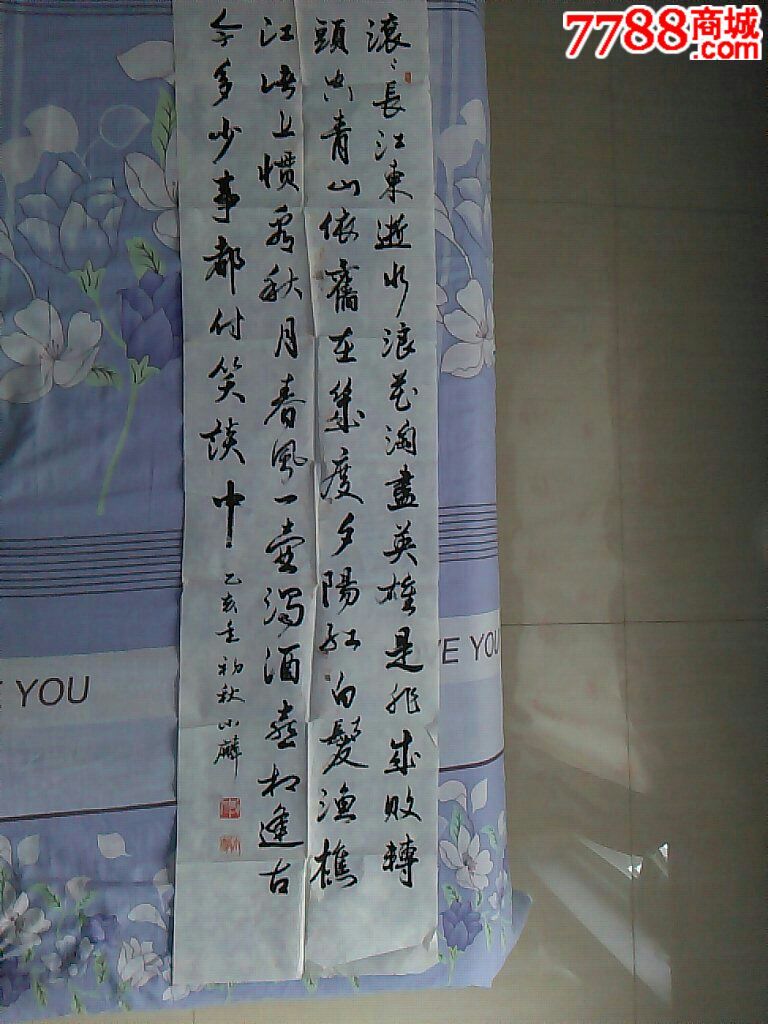 7788商城
.com
滚〻長江東逝水浪花淘盡英雄是非成敗轉
頭空青山依舊在幾度夕陽紅白髮漁樵
江渚上惯看秋月春風一壺濁酒喜相逢古
今多少事都付笑談中
乙亥年初秋小麟
E YOU
VE YOU